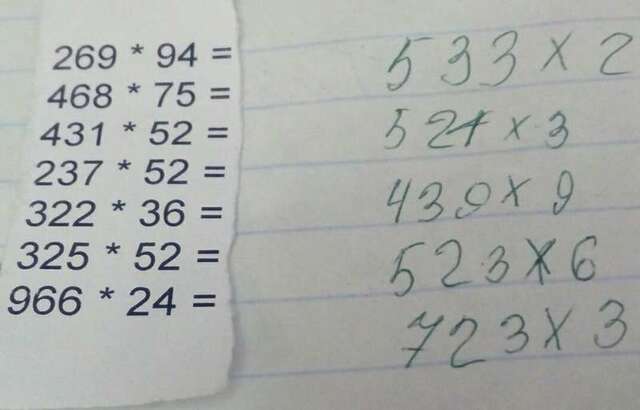 269 * 94 =
468 * 75 =
431 * 52 =
237 * 52 =
322 * 36 =
325 * 52 =
966 * 24 =
533 × 2
521 × 3
439 × 9
523 × 6
723 × 3